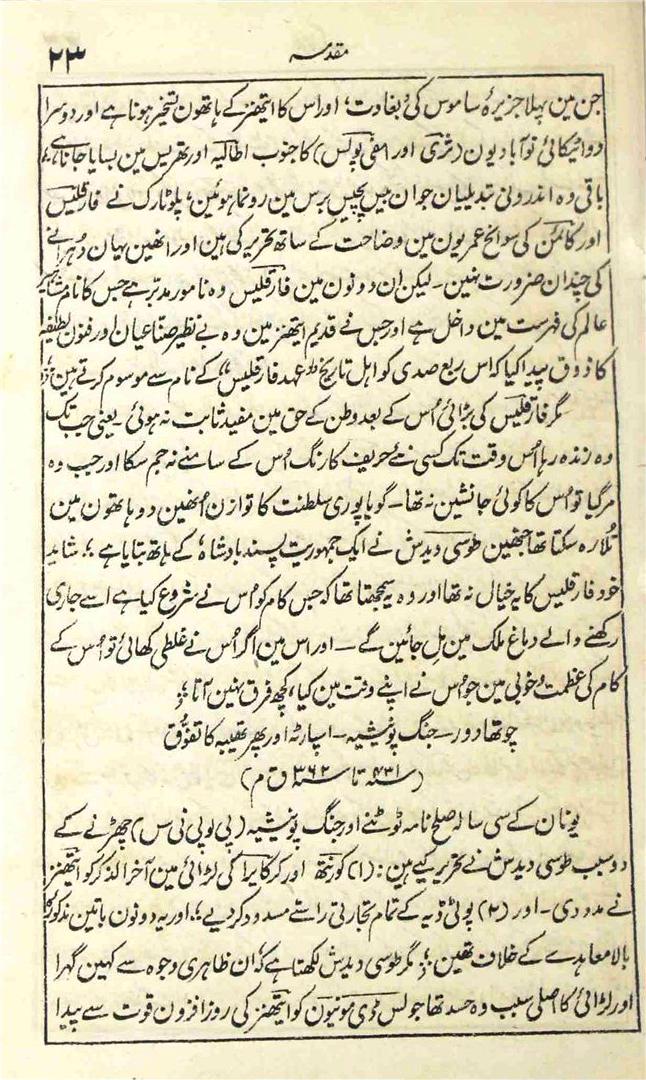 مقدمہ
۲۳
جن مین پہلا جزیرۂ ساموس کی بغاوت، اور اس کا ایتھنز کے ہاتھون تسخیر ہونا ہے اور دوسرا
دو اٹیکائی نوآبادیون (تری اور امفی پولس) کا جنوب اطالیہ اور تھریس مین بسایا جانا ہے،
باقی وہ اندرونی تبدیلیان جو ان بیس پچیس برس مین رونما ہوئین، پلوٹارک نے فارقلیس
اور کائمن کی سوانح عمریون مین وضاحت کے ساتھ تحریر کی ہین اور انھین یہان دہرانے
کی چندان ضرورت نہین۔ لیکن ان دونون مین فارقلیس وہ نامور مدبّر ہے جس کا نام مشاہیر
عالم کی فہرست مین داخل ہے اور جس نے قدیم ایتھنز مین وہ بے نظیر صنّاعیان اور فنونِ لطیفہ
کا ذوق پیدا کیا کہ اس ربع صدی کو اہل تاریخ "عہد فارقلیس" کے نام سے موسوم کرتے ہین،
مگر فارقلیس کی بڑائی اُس کے بعد وطن کے حق مین مفید ثابت نہ ہوئی۔ یعنی جب تک
وہ زندہ رہا اُس وقت تک کسی نئے حریف کا رنگ اُس کے سامنے نہ جم سکا اور جب وہ
مر گیا تو اُس کا کوئی جانشین نہ تھا۔ گویا پوری سلطنت کا توازن اُنھین دو ہاتھون مین
تُلا رہ سکتا تھا جنھین طوسی دیدش نے ایک جمہوریت پسند بادشاہ کے ہاتھ بتایا ہے؛ شاید
خود فارقلیس کا یہ خیال نہ تھا اور وہ یہ سمجھتا تھا کہ جس کام کو اُس نے شروع کیا ہے اسے جاری
رکھنے والے دماغ ملک مین مل جائین گے۔ اور اس مین اگر اُس نے غلطی کھائی تو اُس کے
کام کی عظمت و خوبی مین جو اُس نے اپنے وقت مین کیا، کچھ فرق نہین آتا؛
چوتھا دور۔ جنگ پونیشیہ۔ اسپارٹہ اور پھر تھیبہ کا تفوّق
(۴۳۱؁ تا ۳۶۲؁ ق م)
یونان کے سی سالہ صلح نامہ ٹوٹنے اور جنگ پونیشیہ (پی لو پی نی س) چھڑنے کے
دو سبب طوسی دیدش نے تحریر کیے ہین: (۱) کورنتھ اور کرکایرا کی لڑائی مین آخر الذکر کو ایتھنز
نے مدد دی۔ اور (۲) پوٹی ڈیہ کے تمام تجارتی راستے مسدود کر دیے؛ اور یہ دونون باتین مذکورہ
بالا معاہدے کے خلاف تھین؛ مگر طوسی دیدش لکھتا ہے کہ ان ظاہری وجوہ سے کہین گہرا
اور لڑائی کا اصلی سبب وہ حسد تھا جو لس ڈی مونیون کو ایتھنز کی روز افزون قوت سے پیدا